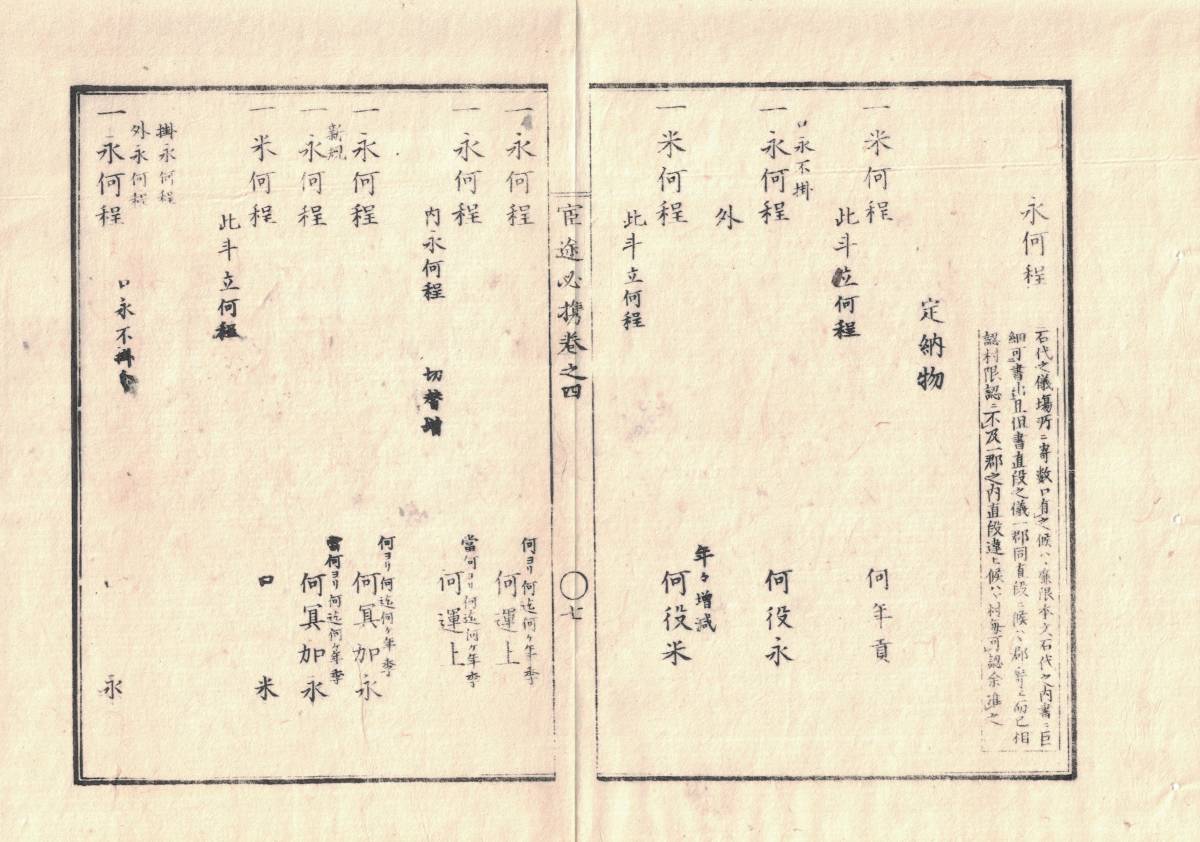 永何程
石代之儀場所ニ寄数口有之候ハヽ廉限本文石代之内書ニ巨
細可書出且但書直段之儀一郡同直段ニ候ハヽ郡寄ニ而已相
認村限認ニ不及一郡之内直段違ヒ候ハヽ村毎可認余准之
定納物
一米何程 何年貢
此斗立何程
口永不掛
一永何程 何役永
外
年々増減
一米何程 何役米
此斗立何程
宦途必携巻之四 〇七
何ヨリ何迄何ヶ年季
一永何程 何運上
當何ヨリ何迄何ヶ年季
一永何程 何運上
内永何程 切替増
何ヨリ何迄何ヶ年季
一永何程 何冥加永
新規
當何ヨリ何迄何ヶ年季
一永何程 何冥加永
一米何程 口米
此斗立何程
掛永何程
外永何程
口永不掛分
一永何程 口永